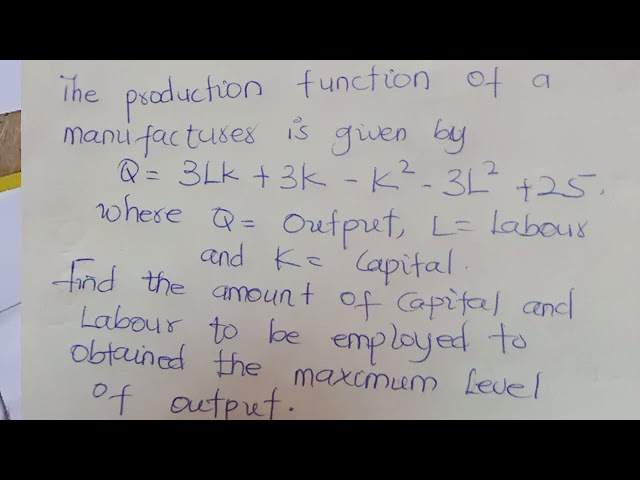 The production function of a
manufactures is given by
Q = 3LK + 3K - K² - 3L² + 25.
where Q = Output, L = Labour
and K = Capital.
find the amount of Capital and
Labour to be employed to
obtained the maximum Level
Of output.